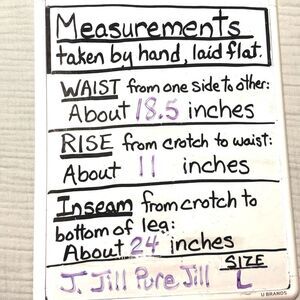 Measurements
taken by hand, laid flat.
WAIST from one side to other:
About 18.5 inches
RISE from crotch to waist:
About 11 inches
Inseam from crotch to
bottom of leg:
About 24 inches
J. Jill Pure Jill SIZE
L
U BRANDS